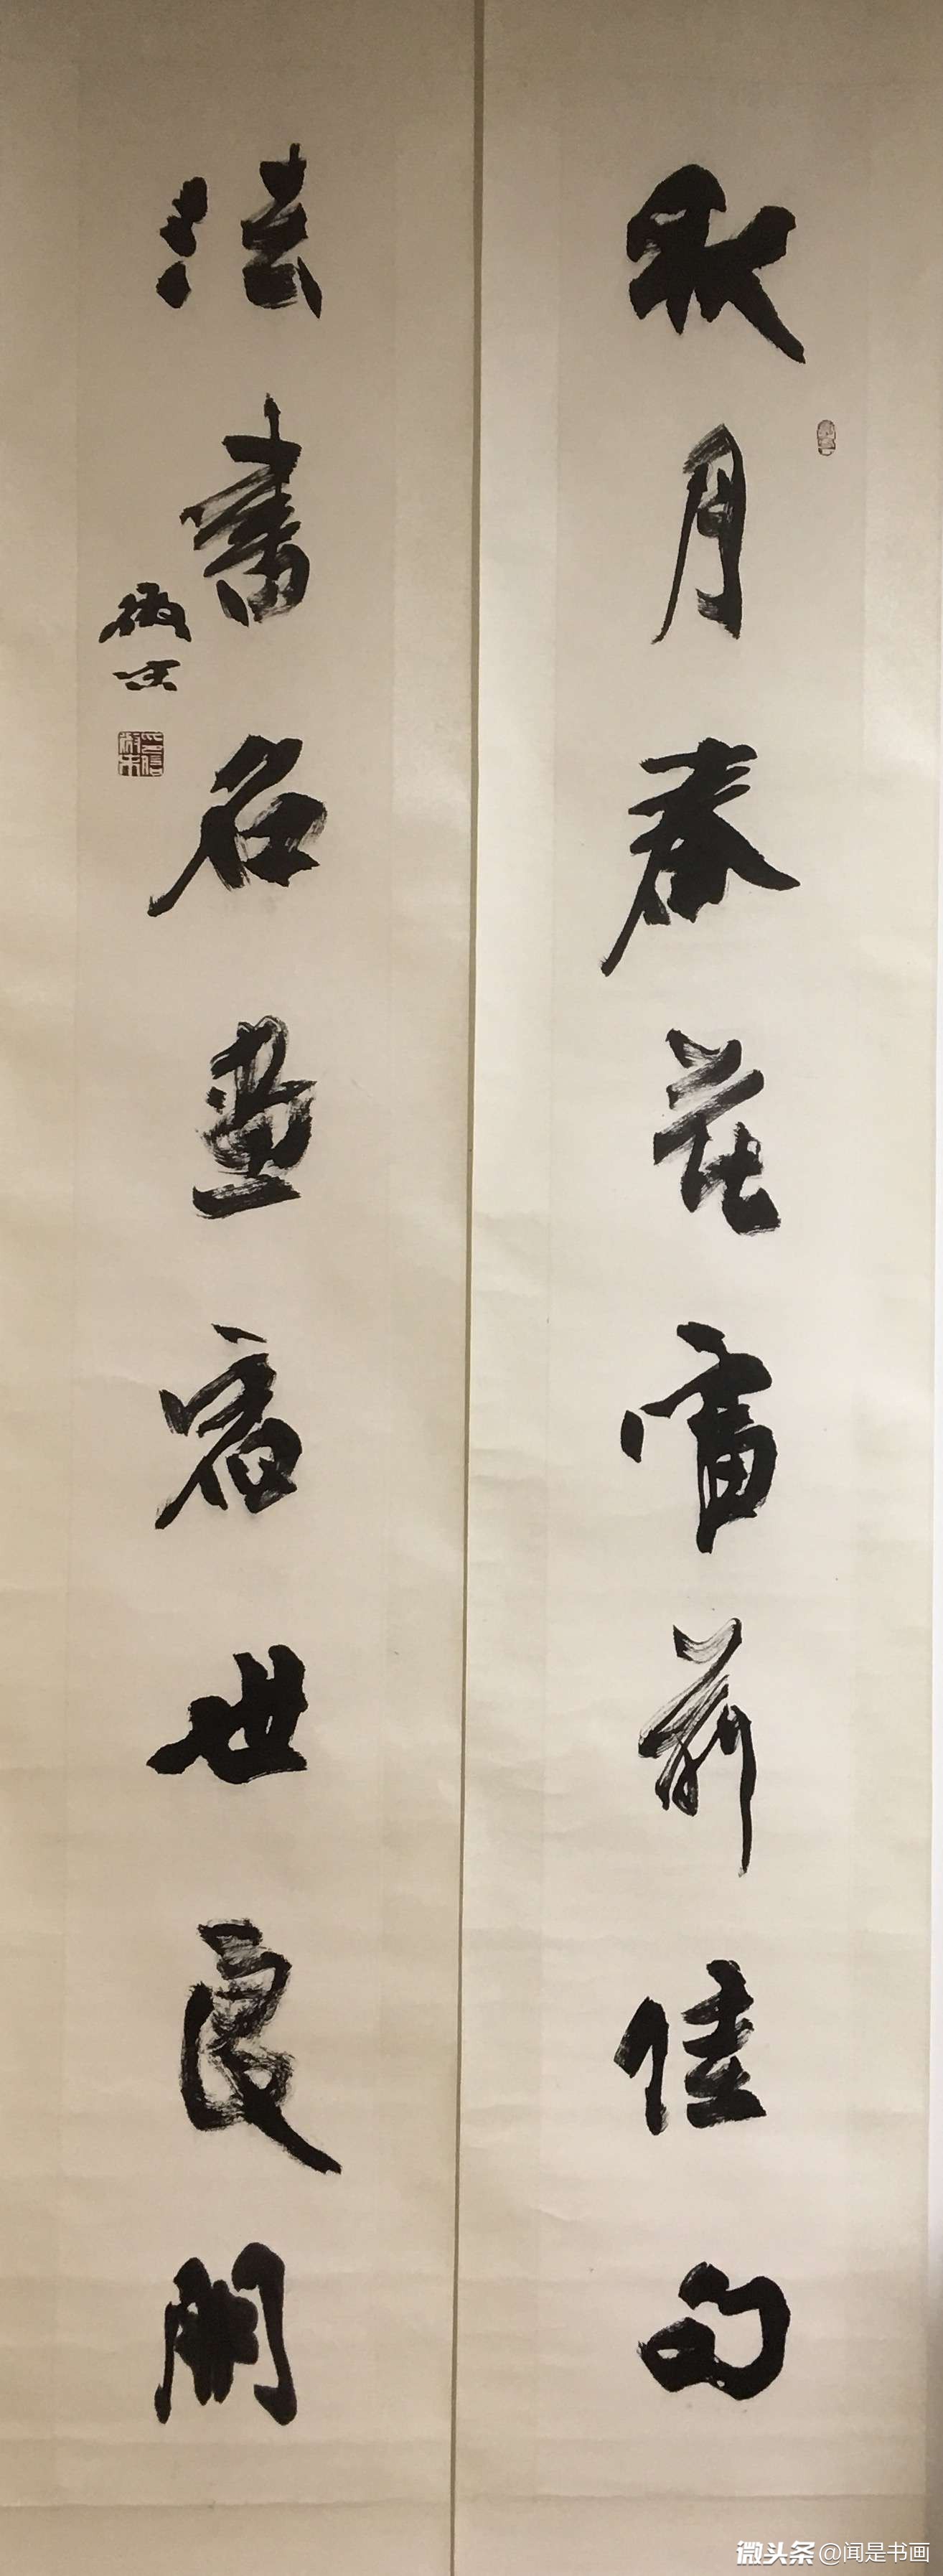 秋月春花當前佳句
法書名畫宿世良朋
微头条@闻是书画